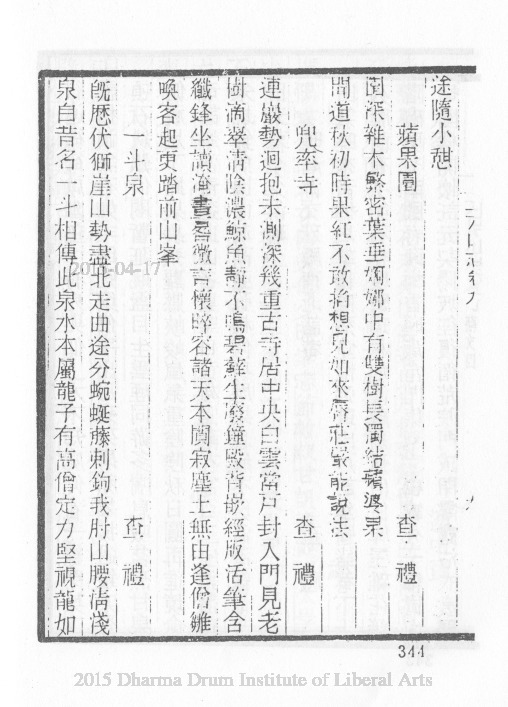 途隨小憩
蘋果園 查禮
園深雜木繁密葉垂婀娜中有雙樹長獨結蘋婆果
聞道秋初時果紅不敢掐想見如來唇莊嚴能說法
兜率寺 查禮
連巖勢迴抱未測深幾重古寺居中央白雲當戶封入門見老
樹滴翠清陰濃鯨魚靜不鳴碧蘚生廢鐘殿背嵌經版活筆含
纖鋒坐讀淹晝晷微言懷睟容諸天本闃寂塵土無由逢僧雛
喚客起更踏前山峯
一斗泉 查禮
旣歷伏獅崖山勢盡北走曲途分蜿蜒藤刺鉤我肘山腰淸淺
泉自昔名一斗相傳此泉水本屬龍子有高僧定力堅視龍如
344
2015-04-17
2015 Dharma Drum Institute of Liberal Arts